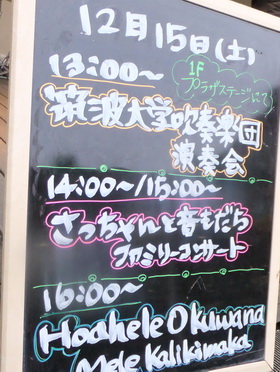 12月15日(土)
13:00～
1F
プラザステージにて
筑波大学吹奏楽団
演奏会
14:00～/15:00～
さっちゃんと音もだち
ファミリーコンサート
16:00～
Hoahele O kuwana
Mele Kalikimaka